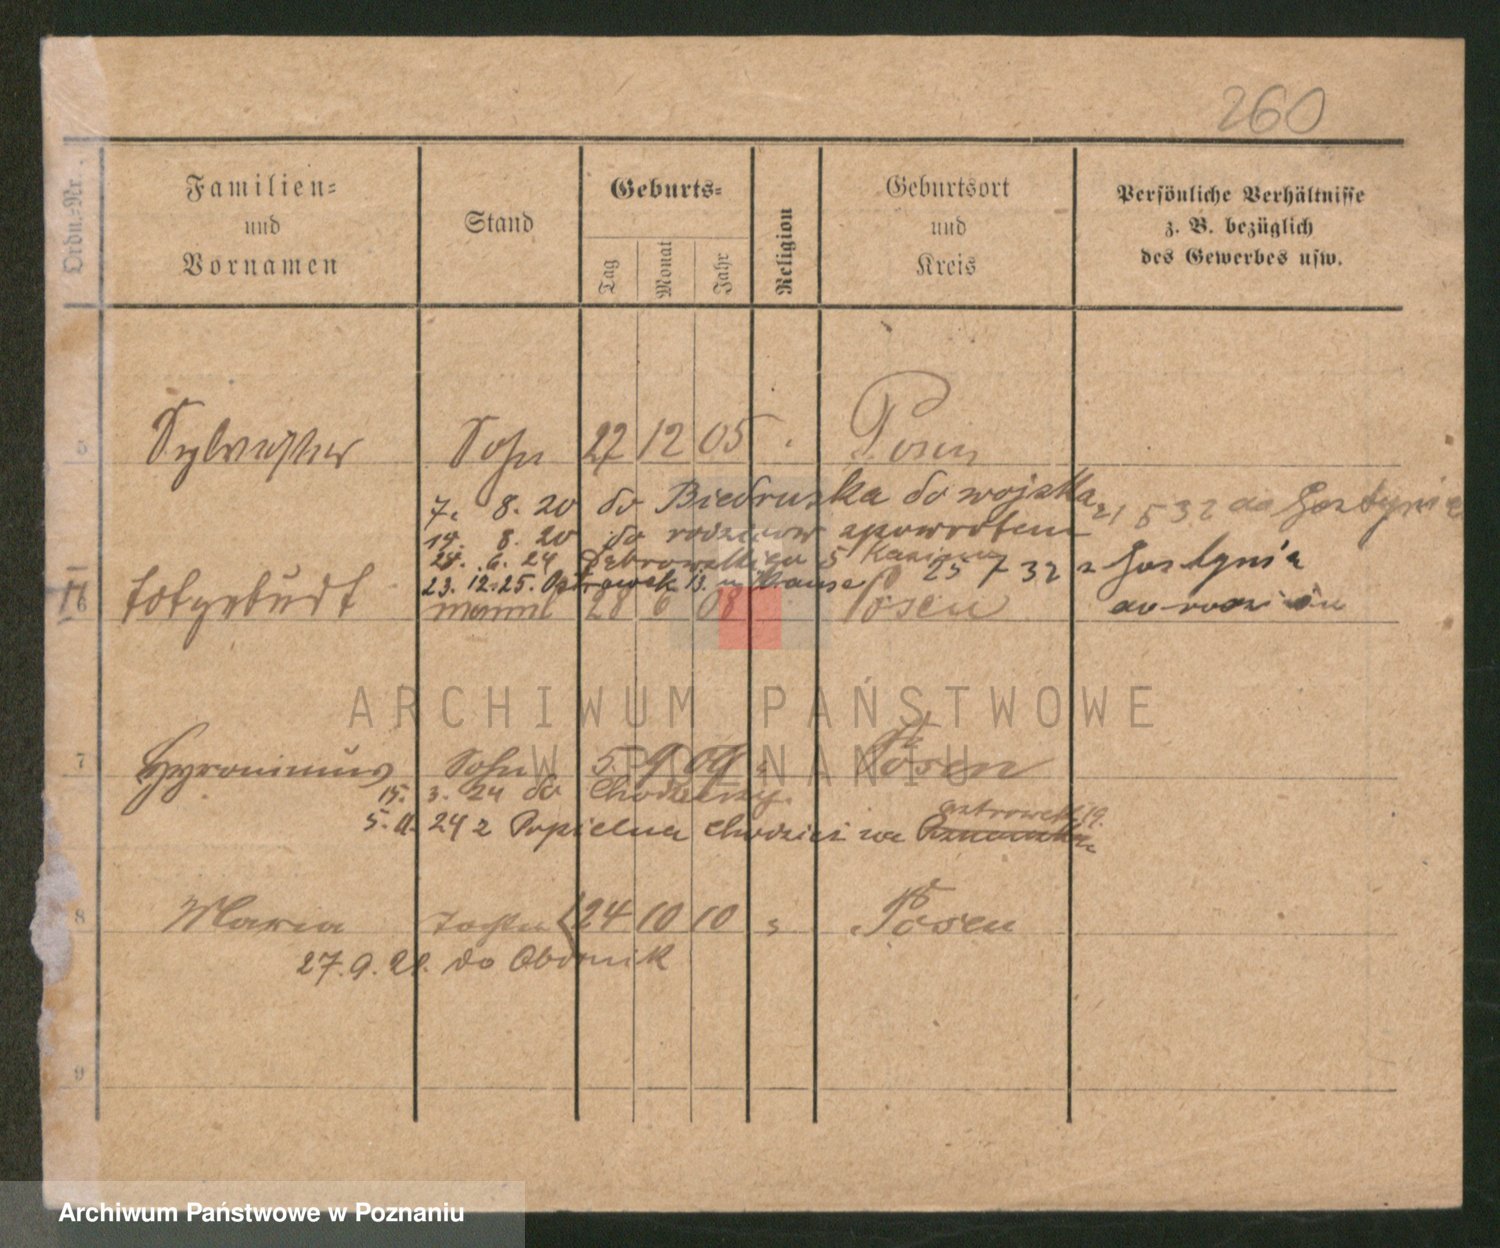 260
Ordn.-Nr.
Familien-
und
Vornamen
Stand
Geburts-
Tag
Monat
Jahr
Religion
Geburtsort
und
Kreis
Persönliche Verhältnisse
z. B. bezüglich
des Gewerbes usw.
5 Sylvester Sohn 27 12 05 Posen
7. 8. 20 do Biedruska do wojska 21 5 32 do Gostynia
19. 8. 20 do rodziców zpowrotem
24. 6. 24 Dąbrowskiego 5 25 7 32 z Gostynia
23. 12. 25. 13. u Krause
6 totgeburt männl 28 6 08 Posen do rodziców
7 Hyronimus Sohn 5 9 09 Posen
15. 3. 24 do Chodzieży
5. 11. 24 z Popielna Chodzież na
8 Maria Tochter 24 10 10 Posen
27. 9. 21. do Obornik
9
ARCHIWUM PAŃSTWOWE
W POZNANIU
Archiwum Państwowe w Poznaniu